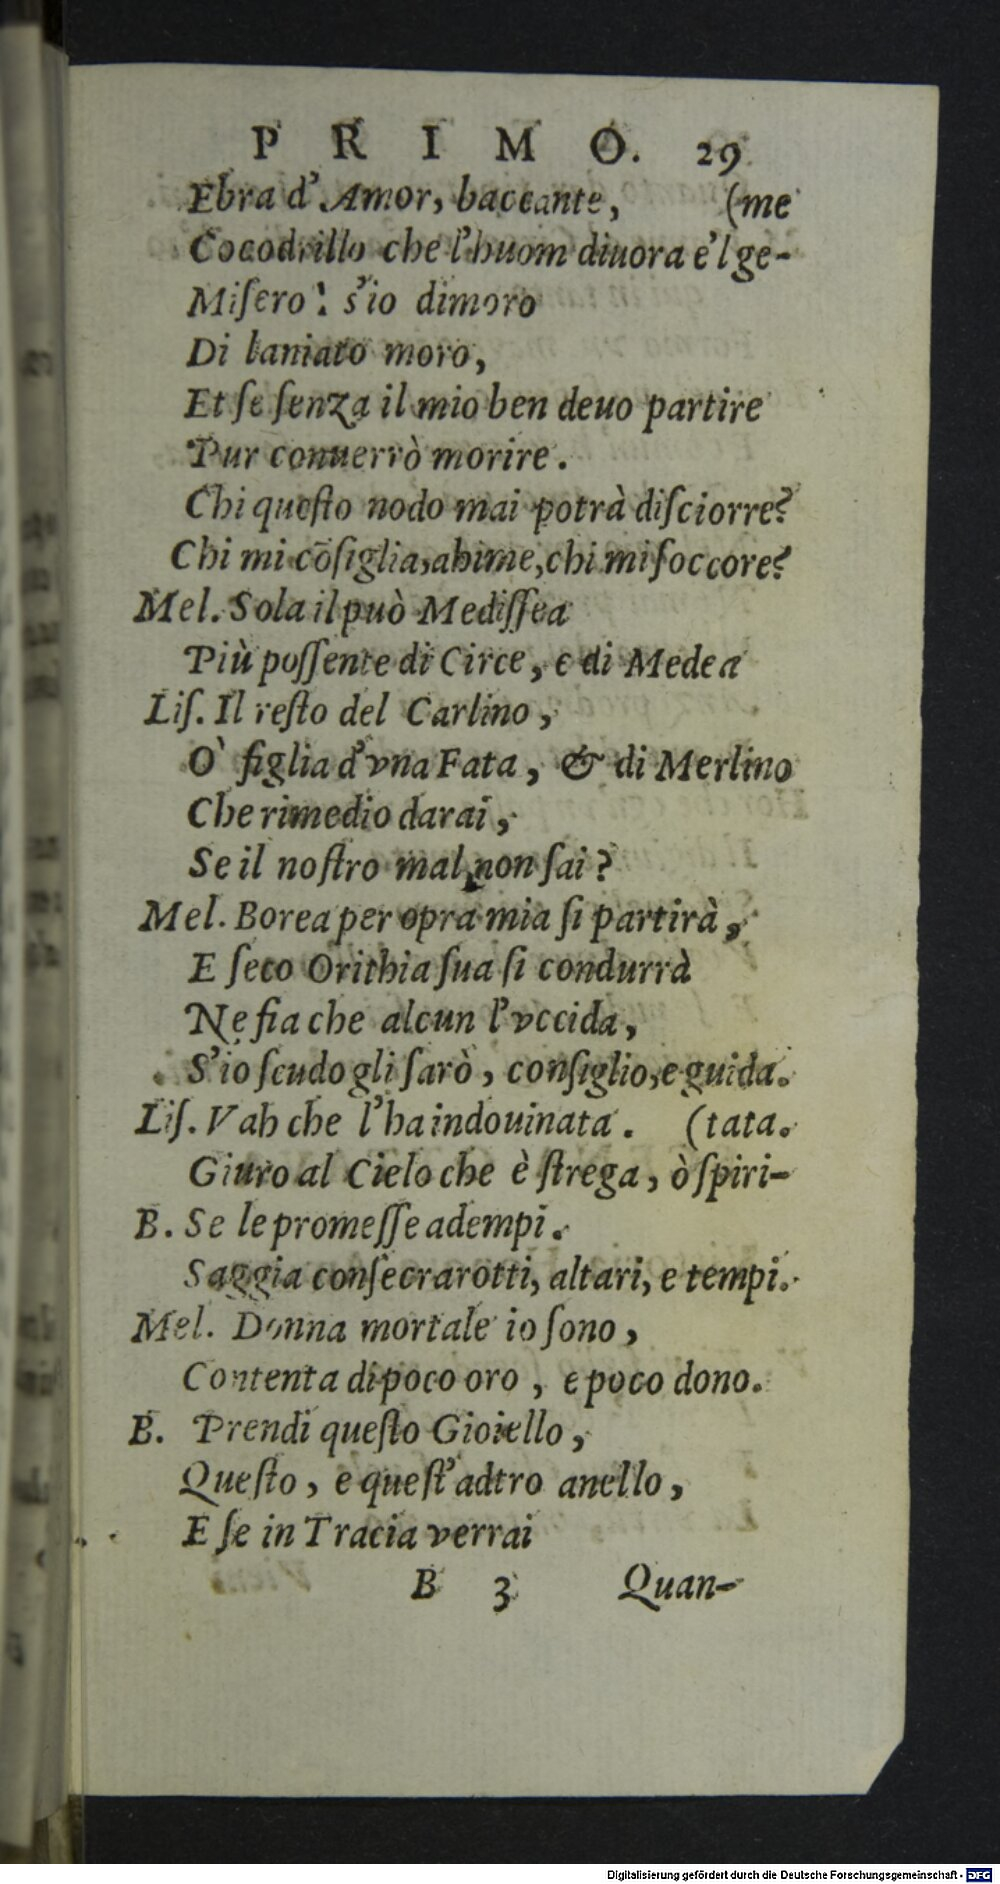 PRIMO. 29
Ebra d'Amor, baccante, (me
Cocodrillo che l'huom diuora e'l ge-
Miſero! s'io dimoro
Di laniato moro,
Et ſe ſenza il mio ben deuo partire
Pur conuerrò morire.
Chi queſto nodo mai potrà diſciorre?
Chi mi cōſiglia, ahime, chi mi ſoccore?
Mel. Sola il può Mediſſea
Più poſſente di Circe, e di Medea
Liſ. Il reſto del Carlino,
O' figlia d'vna Fata, & di Merlino
Che rimedio darai,
Se il noſtro mal non ſai?
Mel. Borea per opra mia ſi partirà,
E ſeco Orithia ſua ſi condurrà
Ne fia che alcun l'vccida,
S'io ſcudo gli ſarò, conſiglio, e guida.
Liſ. Vah che l'ha indouinata. (tata.
Giuro al Cielo che è ſtrega, ò ſpiri-
B. Se le promeſſe adempi.
Saggia conſecrarotti, altari, e tempi.
Mel. Donna mortale io ſono,
Contenta di poco oro, e poco dono.
B. Prendi queſto Gioiello,
Queſto, e queſt'adtro anello,
E ſe in Tracia verrai
B 3 Quan-
Digitalisierung gefördert durch die Deutsche Forschungsgemeinschaft - DFG